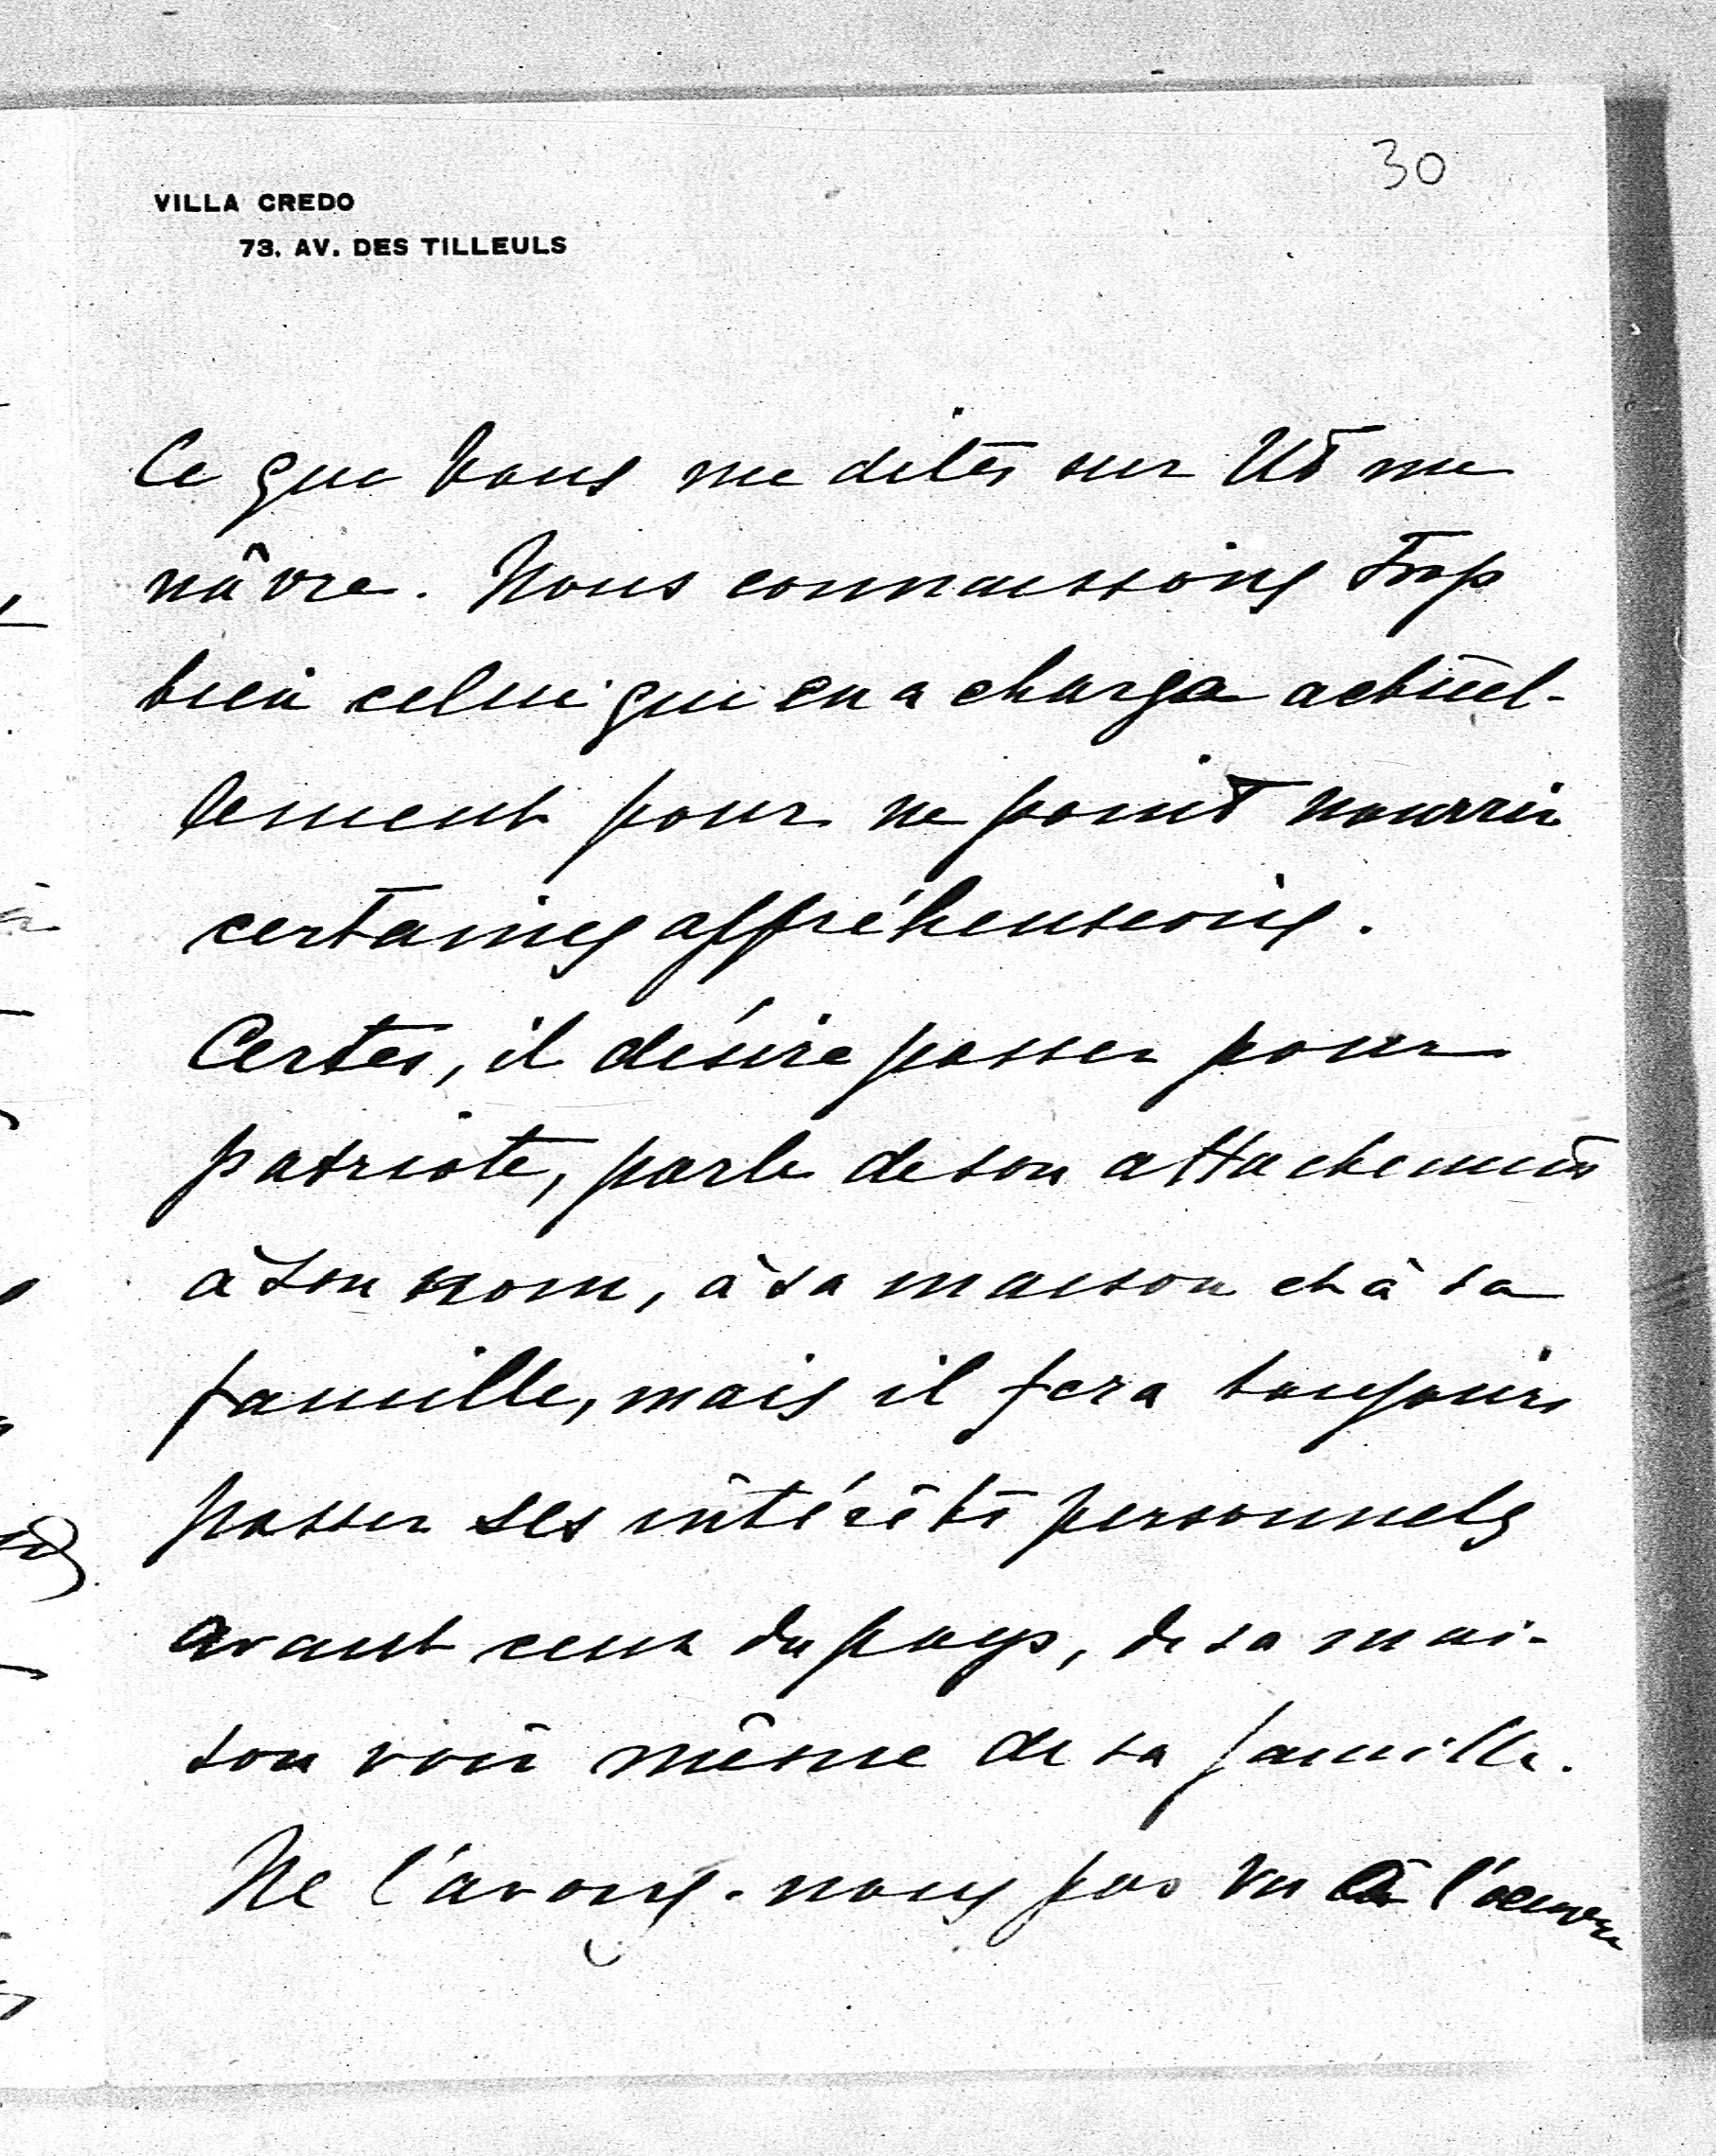 30
VILLA CREDO
73, AV. DES TILLEULS
Ce que Vous me dites sur me
nâvre. Nous connaissons trop
bien celui qui en a charge actuel-
lement pour ne point nourrir
certaines appréhensions.
Certes, il désire passer pour
patriote, parle de son attachement
à son nom, à sa maison et à sa
famille, mais il fera toujours
passer ses intérêts personnels
avant ceux du pays, de sa mai-
son voir même de sa famille.
Ne l'avons-nous pas vu à l'œuvre